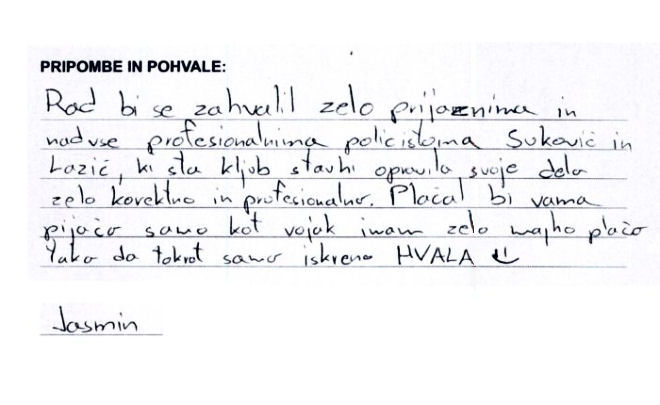 PRIPOMBE IN POHVALE:
Rad bi se zahvalil zelo prijaznima in
nadvse profesionalnima policistoma Suković in
Lazić, ki sta kljub stavki opravila svoje delo
zelo korektno in profesionalno. Plačal bi vama
pijačo samo kot vojak imam zelo majho plačo
Tako da tokrat samo iskreno HVALA
Jasmin